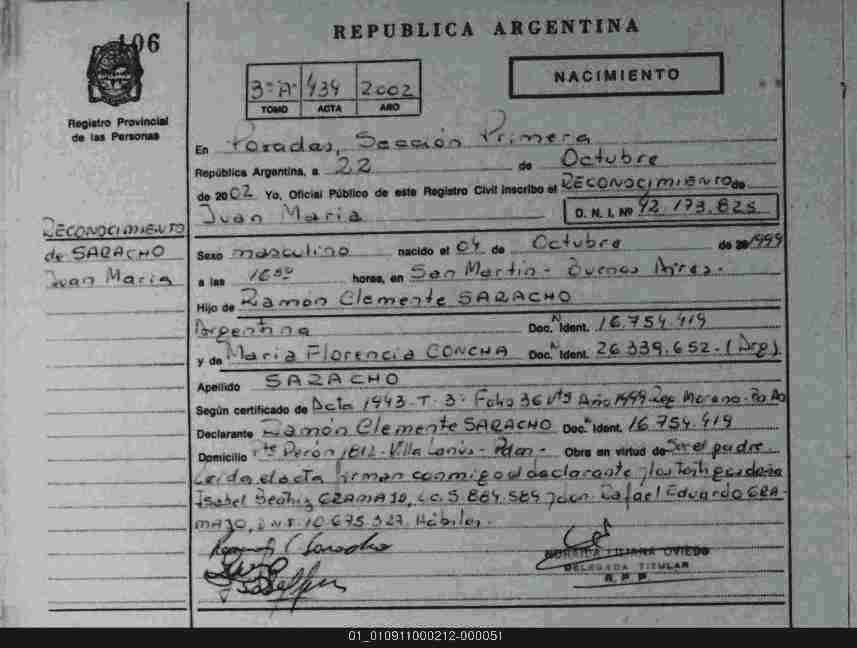 REPUBLICA ARGENTINA
106
3º "A" 434 2002
TOMO ACTA AÑO
NACIMIENTO
Registro Provincial
de las Personas
En Posadas, Sección Primera
República Argentina, a 22 de Octubre
de 2002 Yo, Oficial Público de este Registro Civil inscribo el RECONOCIMIENTO de
Juan Maria D.N.I. Nº 42.173.825
RECONOCIMIENTO
de SARACHO
Juan Maria
Sexo masculino nacido el 04 de Octubre de 1999
a las 16 horas, en San Martin - Buenos Aires.-
Hijo de Ramón Clemente SARACHO
Argentina Doc. Ident. 16.754.419
y de Maria Florencia CONCHA Doc. Ident. 26.339.652.-(Arg).
Apellido SARACHO
Según certificado de Acta 1943-T. 3º Folio 36 Año 1999 Moreno
Declarante Ramón Clemente SARACHO Doc. Ident. 16.754.419
Domicilio Pte Perón 1812-Villa Lanús- Pdas- Obra en virtud de Ser el padre
Leída el acta firman conmigo el declarante y los testigos doña
Isabel Beatriz GRAMAJO, L.C. 5.884.584 y don Rafael Eduardo GRA-
MAJO, D.N.I. 10.675.327 Hábiles.-
LILIANA OVIEDO
DELEGADA TITULAR
R.P.P.
01_010911000212-000051